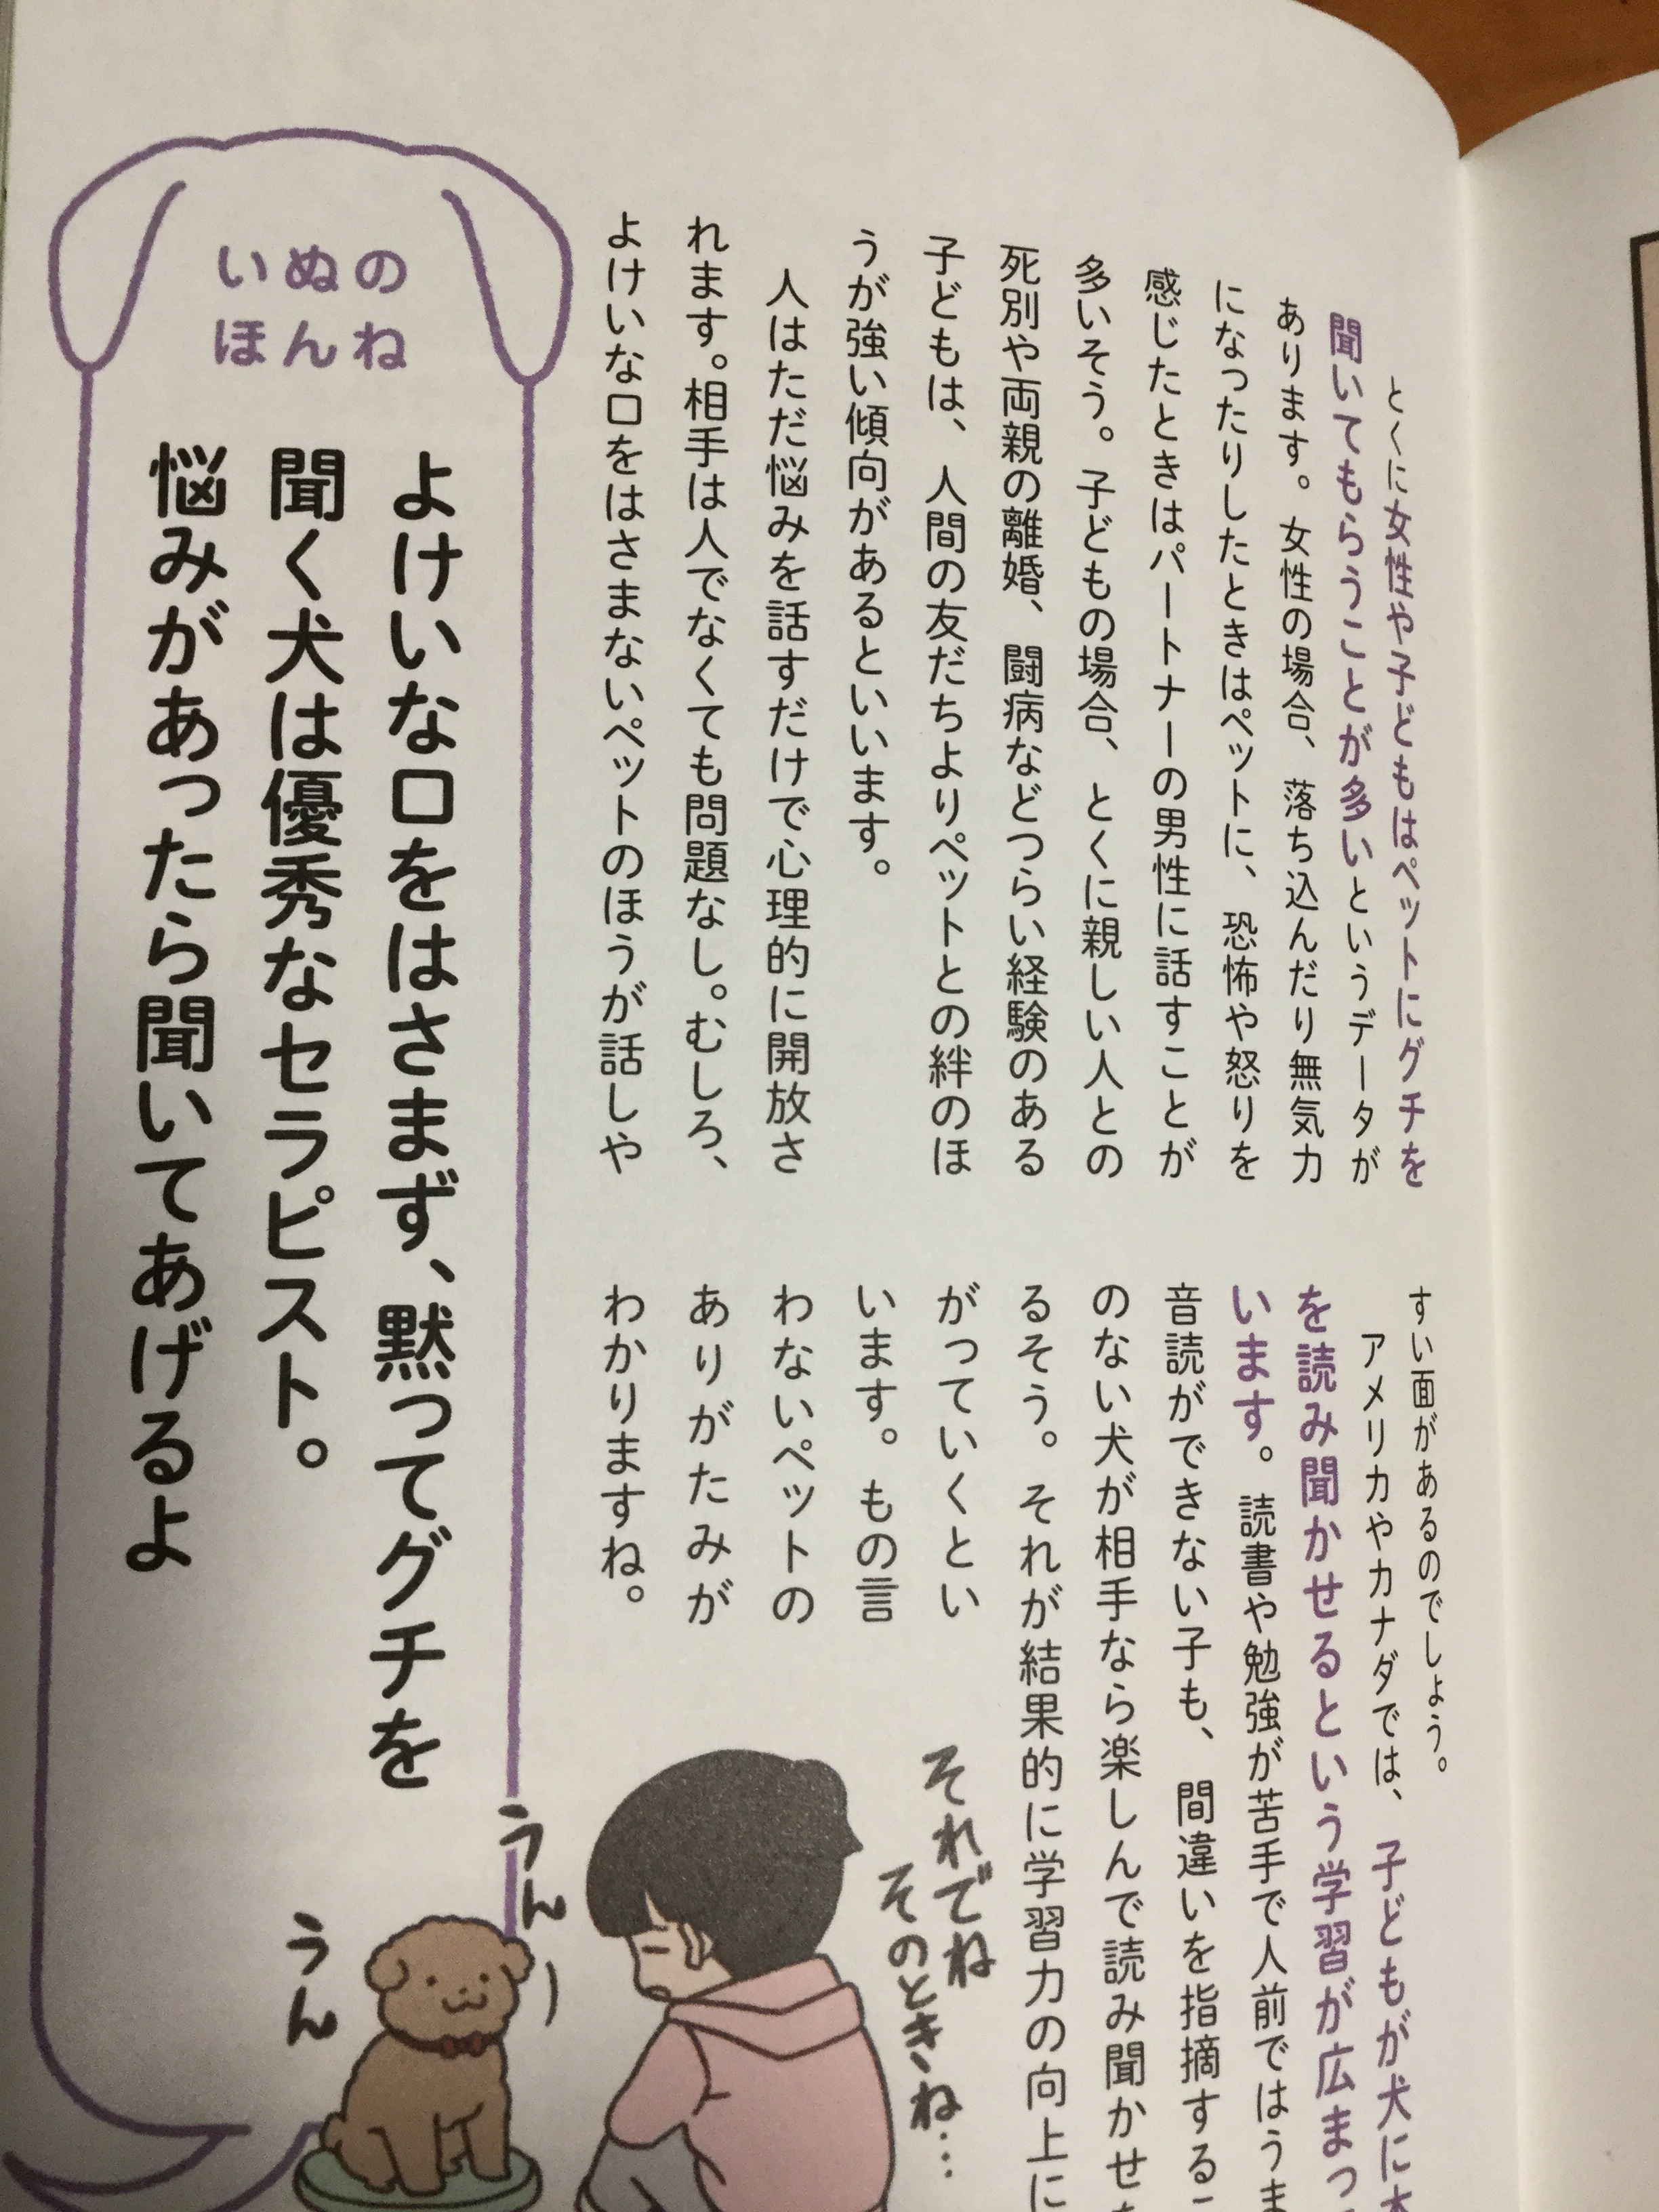 とくに女性や子どもはペットにグチを
聞いてもらうことが多いというデータが
あります。女性の場合、落ち込んだり無気力
になったりしたときはペットに、恐怖や怒りを
感じたときはパートナーの男性に話すことが
多いそう。子どもの場合、とくに親しい人との
死別や両親の離婚、闘病などつらい経験のある
子どもは、人間の友だちよりペットとの絆のほ
うが強い傾向があるといいます。
人はただ悩みを話すだけで心理的に開放さ
れます。相手は人でなくても問題なし。むしろ、
よけいな口をはさまないペットのほうが話しや
すい面があるのでしょう。
アメリカやカナダでは、子どもが犬に本
を読み聞かせるという学習が広まって
います。読書や勉強が苦手で人前ではうま
音読ができない子も、間違いを指摘するこ
のない犬が相手なら楽しんで読み聞かせ
るそう。それが結果的に学習力の向上に
がっていくとい
います。もの言
わないペットの
ありがたみが
わかりますね。
それでね
そのときね…
うん
うん
いぬの
ほんね
よけいな口をはさまず、黙ってグチを
聞く犬は優秀なセラピスト。
悩みがあったら聞いてあげるよ